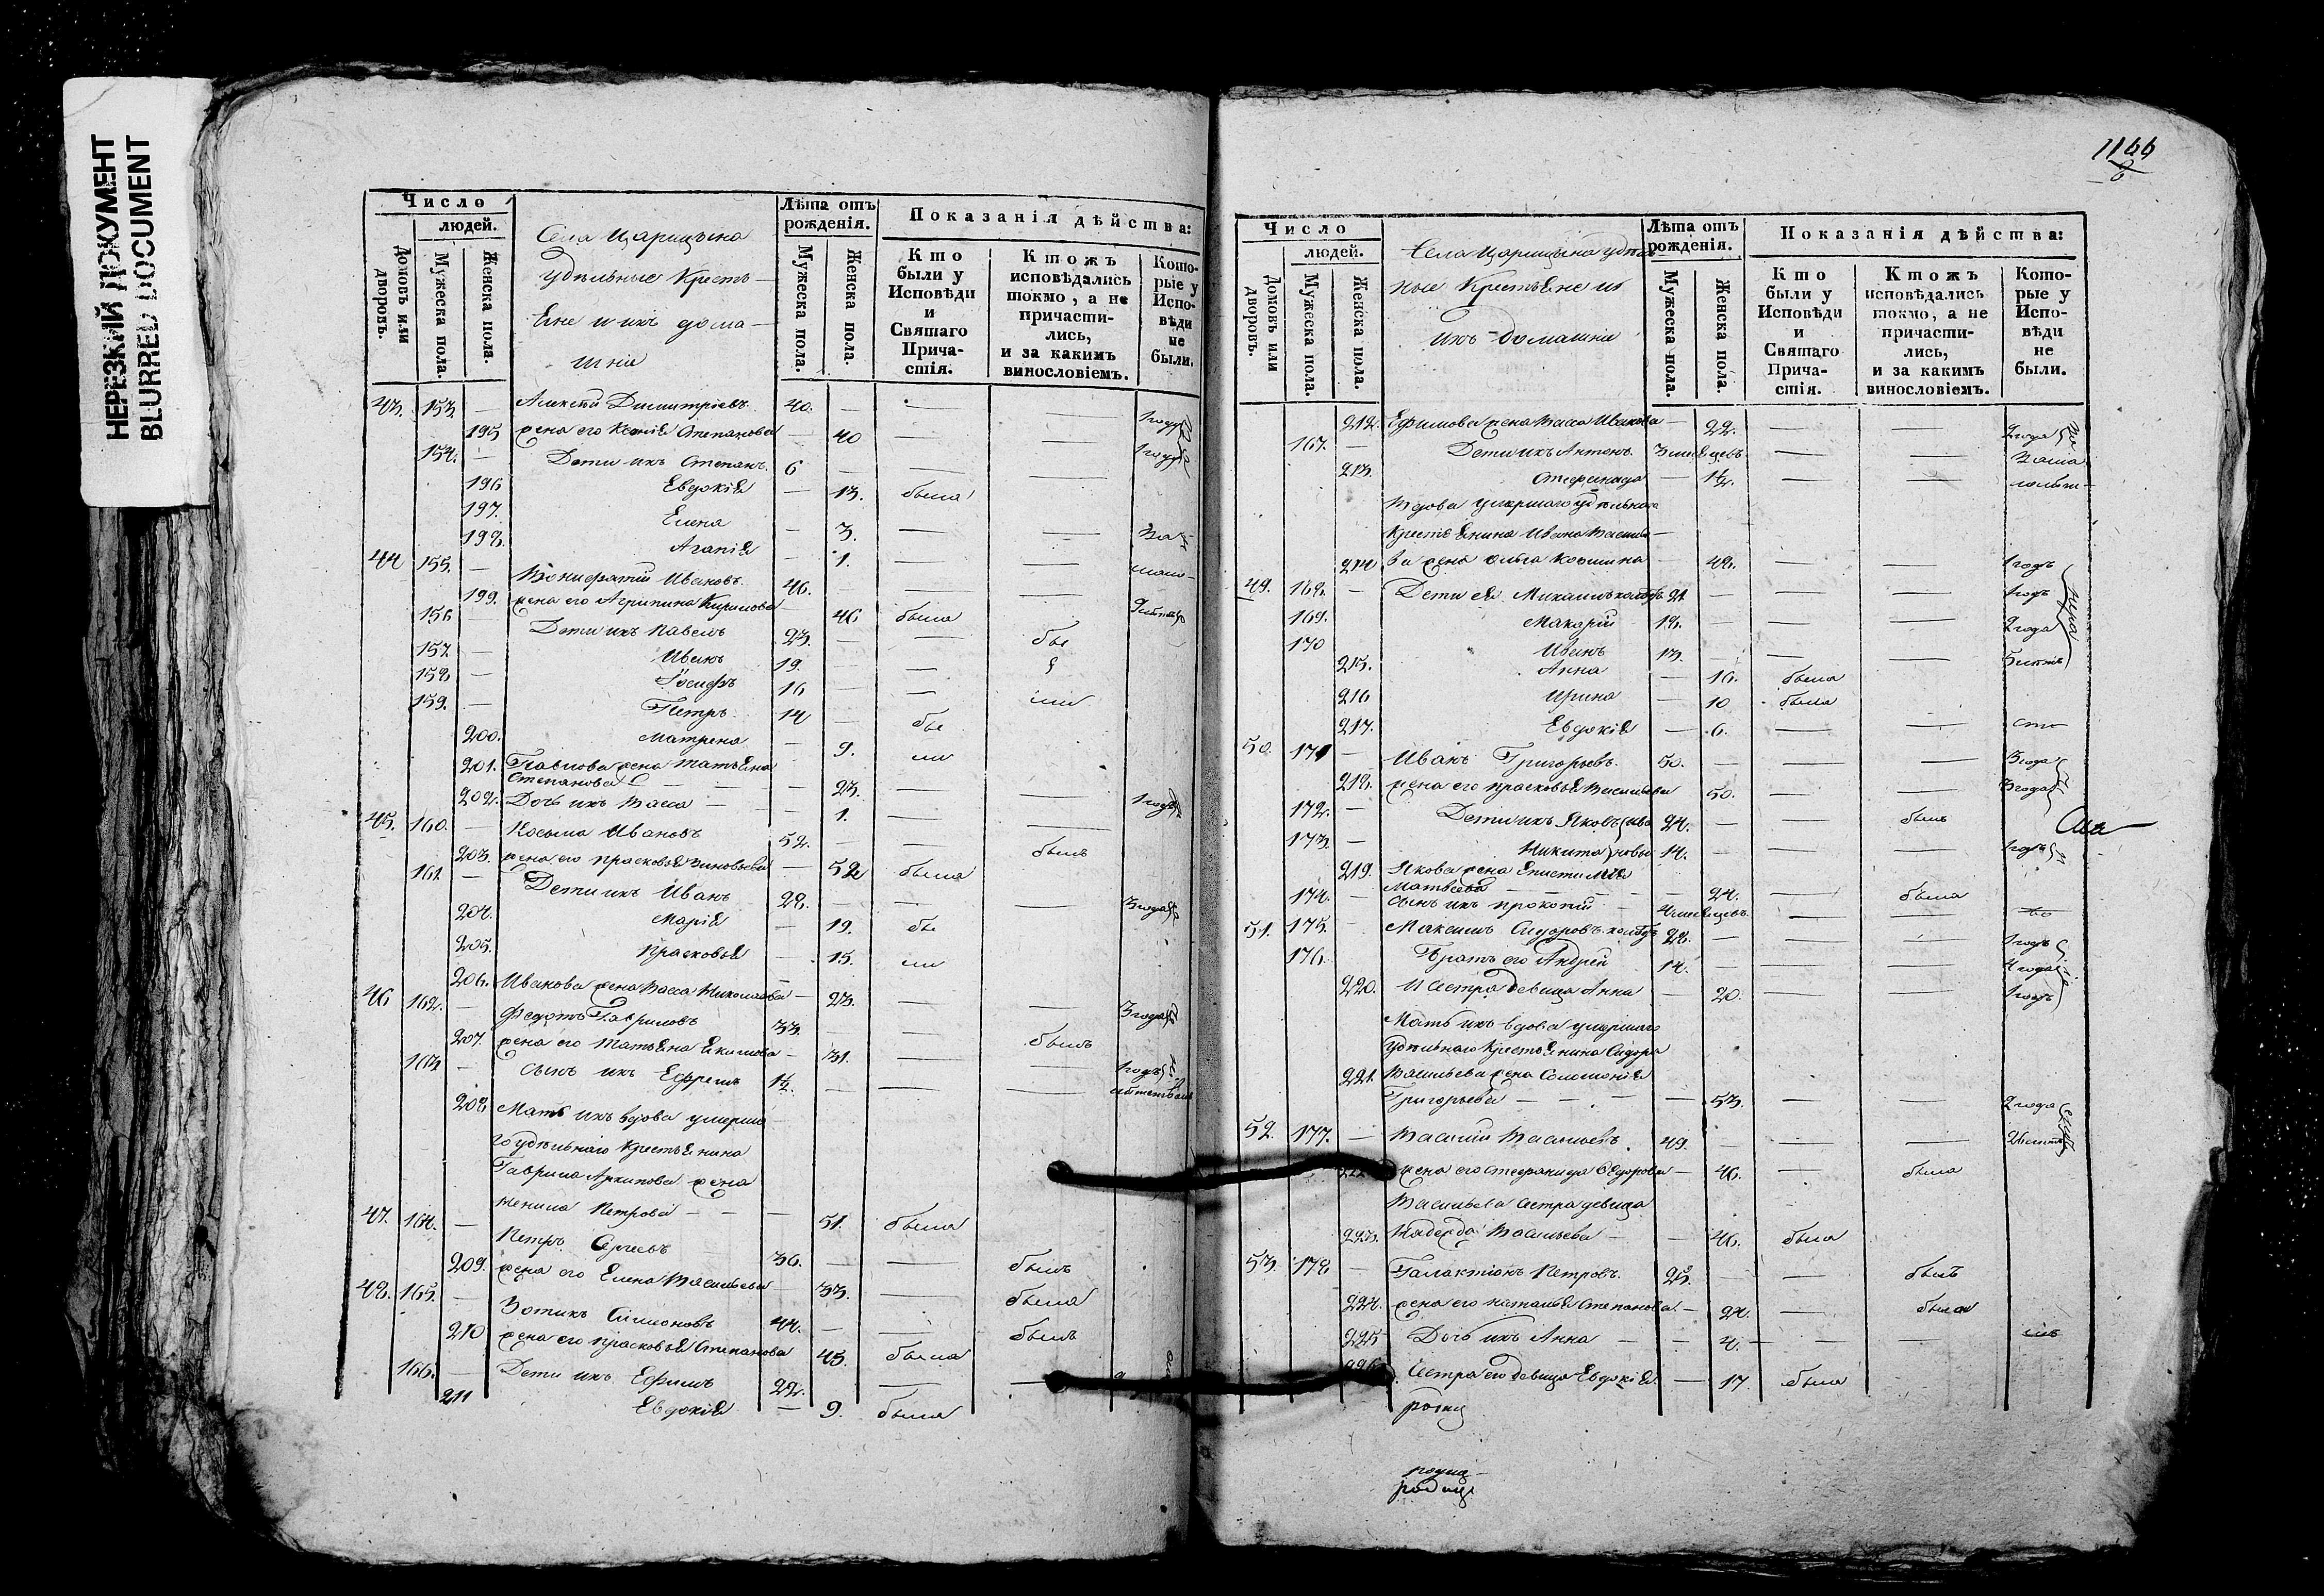 НЕРЕЗКИЙ ДОКУМЕНТ
BLURRED DOCUMENT
Число
людей.
Домовъ или дворовъ.
Мужеска пола.
Женска пола.
Села Царицына
Удѣльные Кресть-
яне и ихъ дома-
шніе
Лѣта отъ рожденія.
Мужеска пола.
Женска пола.
Показанія дѣйства:
Кто были у Исповѣди и Святаго Прича- стія.
Ктожъ исповѣдались токмо, а не причасти- лись, и за какимъ винословіемъ.
Кото- рые у Испо- вѣди не были.
43. 153. — Алексѣй Димитріевъ 40. — — — 1 годъ
195 жена его Ксенія Степанова — 40 — — 1 годъ
154. — Дети ихъ Степанъ. 6 — — —
196 Евдокія — 13. была
197. Елена — 3. — — За
198. Агапія — 1. — — мало-
44 155. — Вонифатій Ивановъ. 46. — — — лѣтст
199. жена его Агрипина Кирилова 46 была
156 — Дети ихъ Павелъ 23. — — бы
157. — Иванъ 19. — —
158 — Іосифъ 16 — — ли
159. — Петръ. 14 — бы
200. Матрена — 9. ли
201. Павлова жена Татьяна
Степанова — — — 23. — — 1 годъ
202. Дочь ихъ Васса — — 1. — —
45. 160. — Косьма Ивановъ 52. — — былъ
203. жена его Прасковья Зиновьева — 52 была
161. — Дети ихъ Иванъ 28. — — — 3 года
204. Марія — 19. бы
205. Прасковья — 15. ли
206. Иванова жена Васса Николаева — 23. — — 3 года
46 162. — Федотъ Гавриловъ 33. — — былъ
207. жена его Татьяна Якимова — 31. — — 1 годъ
163 — Сынъ ихъ Ефремъ 1½. — — —
208 Мать ихъ вдова умерша-
го удѣльнаго Крестьянина
Гаврила Архипова жена
Петрова — — — 51. была
47. 164. — Петръ Сергѣевъ 36. — — былъ
209. жена его Елена Васильева — 33. — была
48. 165. — Зотикъ Симоновъ 44. — — былъ
210 жена его Прасковья Степанова 45. была
166. — Дети ихъ Ефимъ 22. — — —
211 Евдокія — 9. была
1144
Число
людей.
Домовъ или дворовъ.
Мужеска пола.
Женска пола.
Села Царицына удѣль-
ные Крестьяне и
ихъ домашніе
Лѣта отъ рожденія.
Мужеска пола.
Женска пола.
Показанія дѣйства:
Кто были у Исповѣди и Святаго Прича- стія.
Ктожъ исповѣдались токмо, а не причасти- лись, и за какимъ винословіемъ.
Кото- рые у Испо- вѣди не были.
212. Ефимова жена Васса Иванова — 22. — — 2 года
167. — Дети ихъ Антонъ. 3 мѣсяцевъ. — — За ма
213. Стефанида — 1½. — — лолѣт-
Вдова умершаго удѣльнаго
Крестьянина Ивана Василье-
214 ва жена Ольга Козмина — 48. — — 1 годъ
49. 168. — Дети ея Михаилъ холостъ 21. — — — 1 годъ
169. Макарій 18. — — — 2 года
170 Иванъ 13. — — — 5 лѣтъ
215. Анна — 16. была
216 Ирина — 10 была
217. Евдокія — 6. — — ст
50. 171 — Иванъ Григорьевъ. 50. — — — 3 года
218. жена его Прасковья Васильева 50. — — 3 года
172. — Дети ихъ Яковъ Ива 24. — — былъ
173. — Никита новы 14. — — — 1 годъ
219. Якова жена Епистимія
Матвѣева — — — 24. — была
174. — Сынъ ихъ Прокопій — 4 мѣсяцевъ. — — во
51. 175. — Максимъ Сидоровъ холостъ 28. — — — 1 годъ
176. Братъ его Андрей 14. — — — 4 года
220. И Сестра девица Анна — 20. — — 1 годъ
Мать ихъ вдова умершаго
Удѣльнаго Крестьянина Сидора
221. Васильева жена Соломонія
Григорьева — — — — 53. — — 2 года
52. 177. — Василій Васильевъ. 49. — — —
222 жена его Стефанида Ѳедорова — 46. — была
Васильева Сестра девица
223. Надежда Васильева — — 46. была
53. 178 — Галактіонъ Петровъ. 25. — — былъ
224. жена его Наталья Степанова — 24. — была
225 Дочь ихъ Анна — — 4. — —
226. Сестра его девица Евдокія. — 17. была